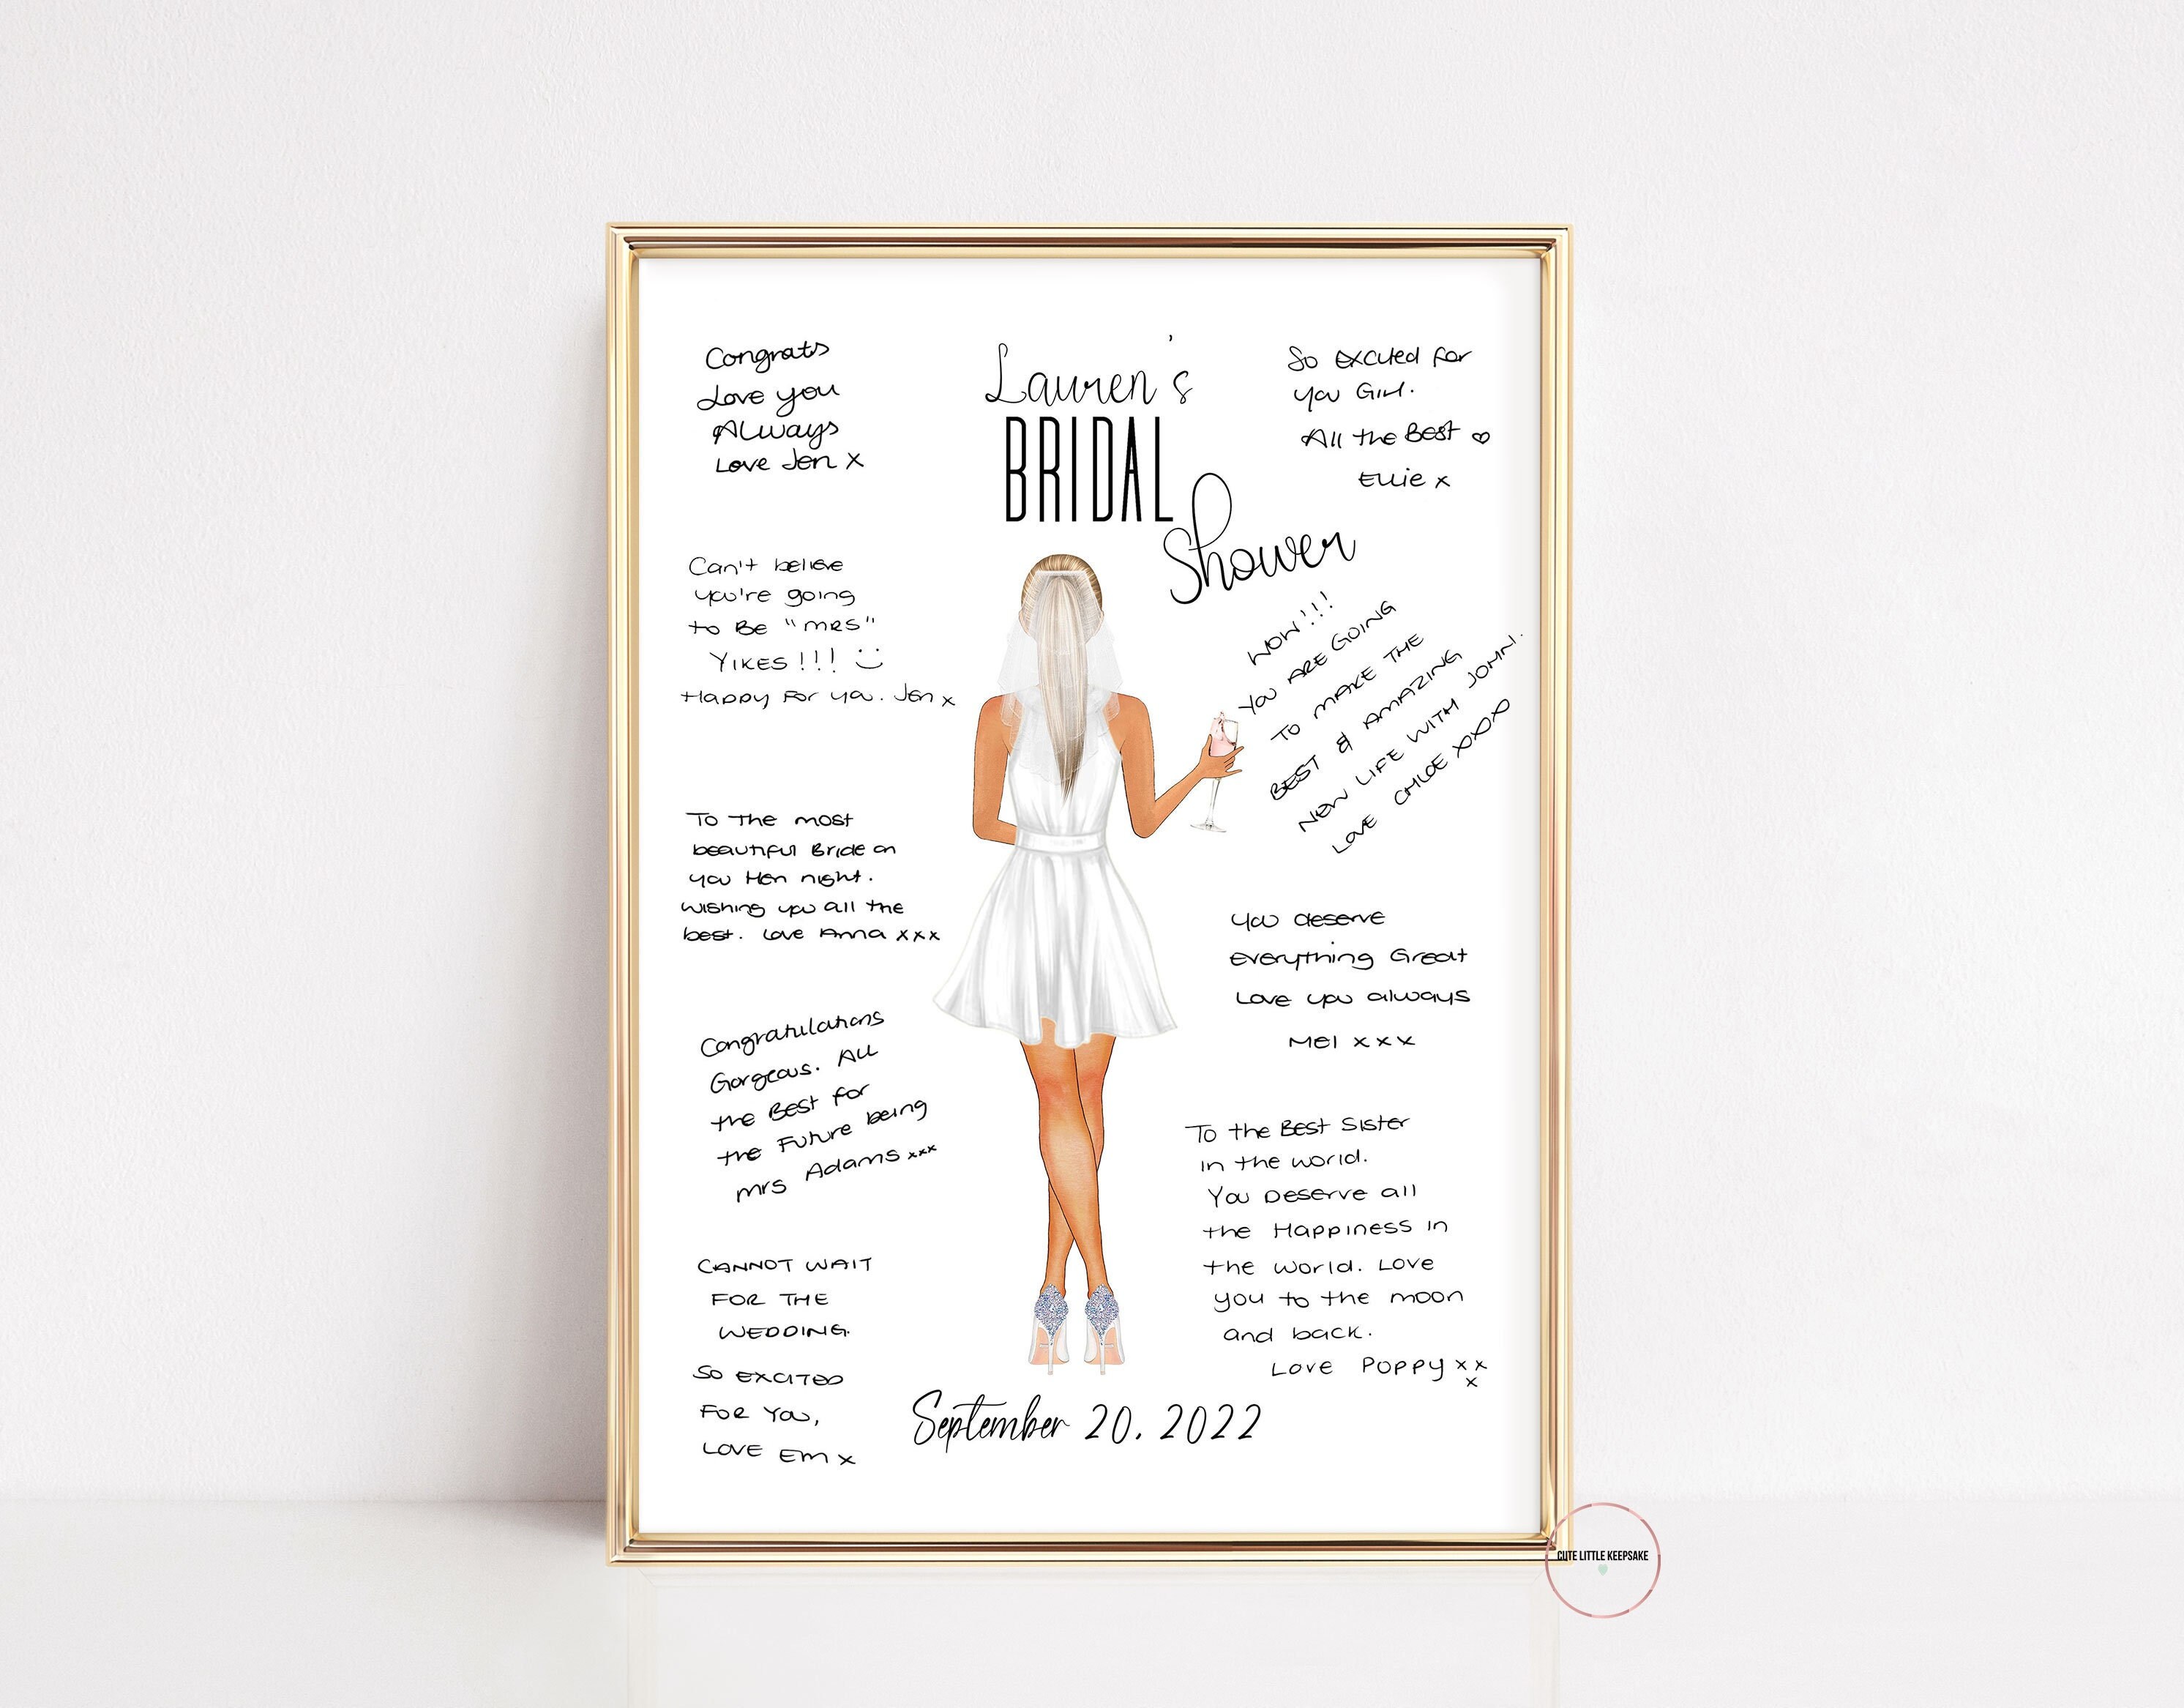 Lauren's
BRIDAL
Shower
Congrats
Love you
Always
Love Jen x
So Excited for
you Girl.
All the Best ♡
Ellie x
Can't believe
you're going
to Be "mrs"
YIKES!!! ☺
Happy For you. Jen x
WOW!!!
YOU ARE GOING
TO MAKE THE
BEST & AMAZING
NEW LIFE WITH JOHN.
LOVE CHLOE XXXO
To the most
beautiful Bride on
you Hen night.
wishing you all the
best. Love Anna xxx
you deserve
everything Great
Love you always
Mel xxx
Congratulations
Gorgeous. All
the Best for
the Future being
mrs Adams xxx
To the Best Sister
in the world.
You Deserve all
the Happiness in
the world. Love
you to the moon
and back.
Love Poppy xx
x
CANNOT WAIT
FOR THE
WEDDING.
SO EXCITED
FOR YOU,
LOVE Em x
September 20, 2022
CUTE LITTLE KEEPSAKE